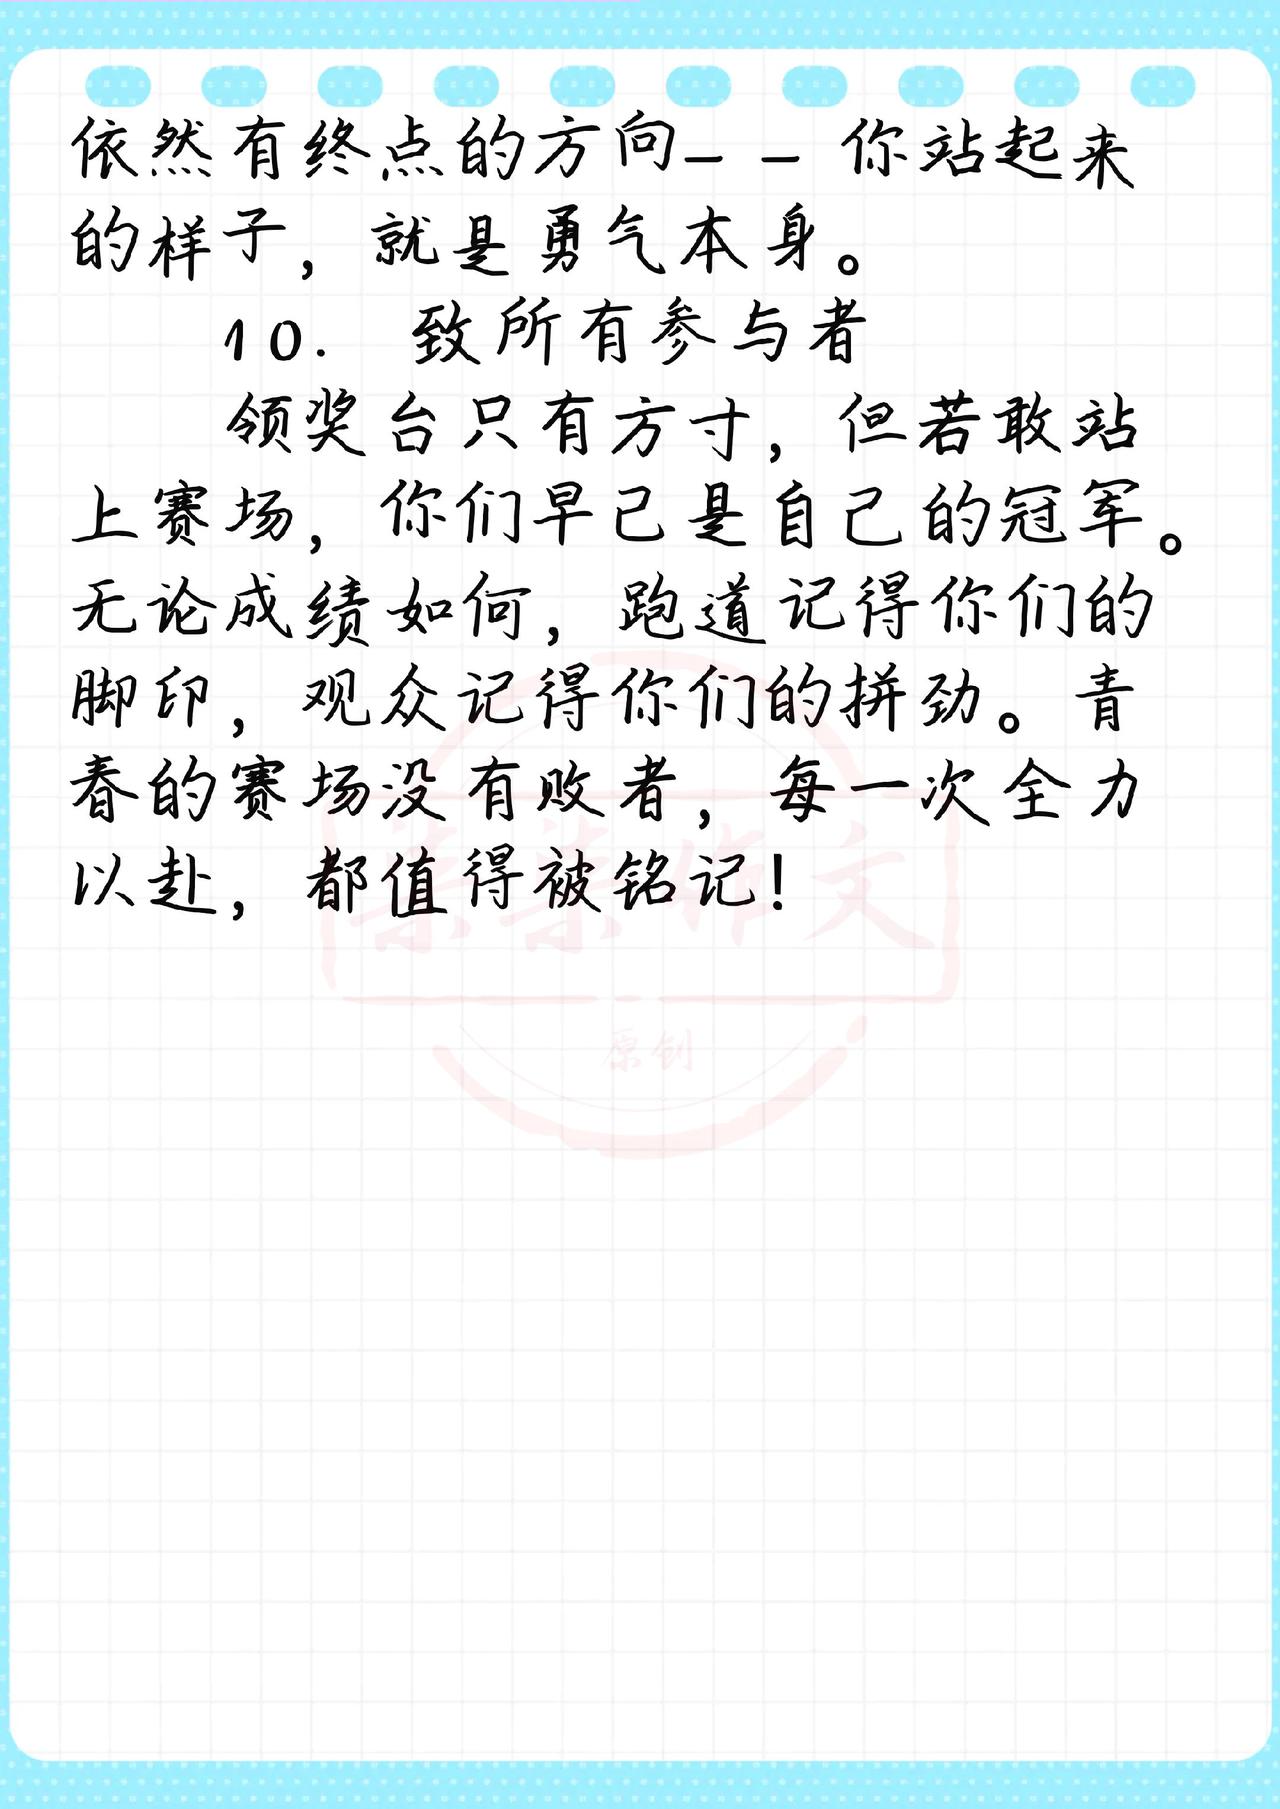 依然有终点的方向——你站起来
的样子，就是勇气本身。
10. 致所有参与者
领奖台只有方寸，但若敢站
上赛场，你们早已是自己的冠军。
无论成绩如何，跑道记得你们的
脚印，观众记得你们的拼劲。青
春的赛场没有败者，每一次全力
以赴，都值得被铭记！
柒柒作文
原创